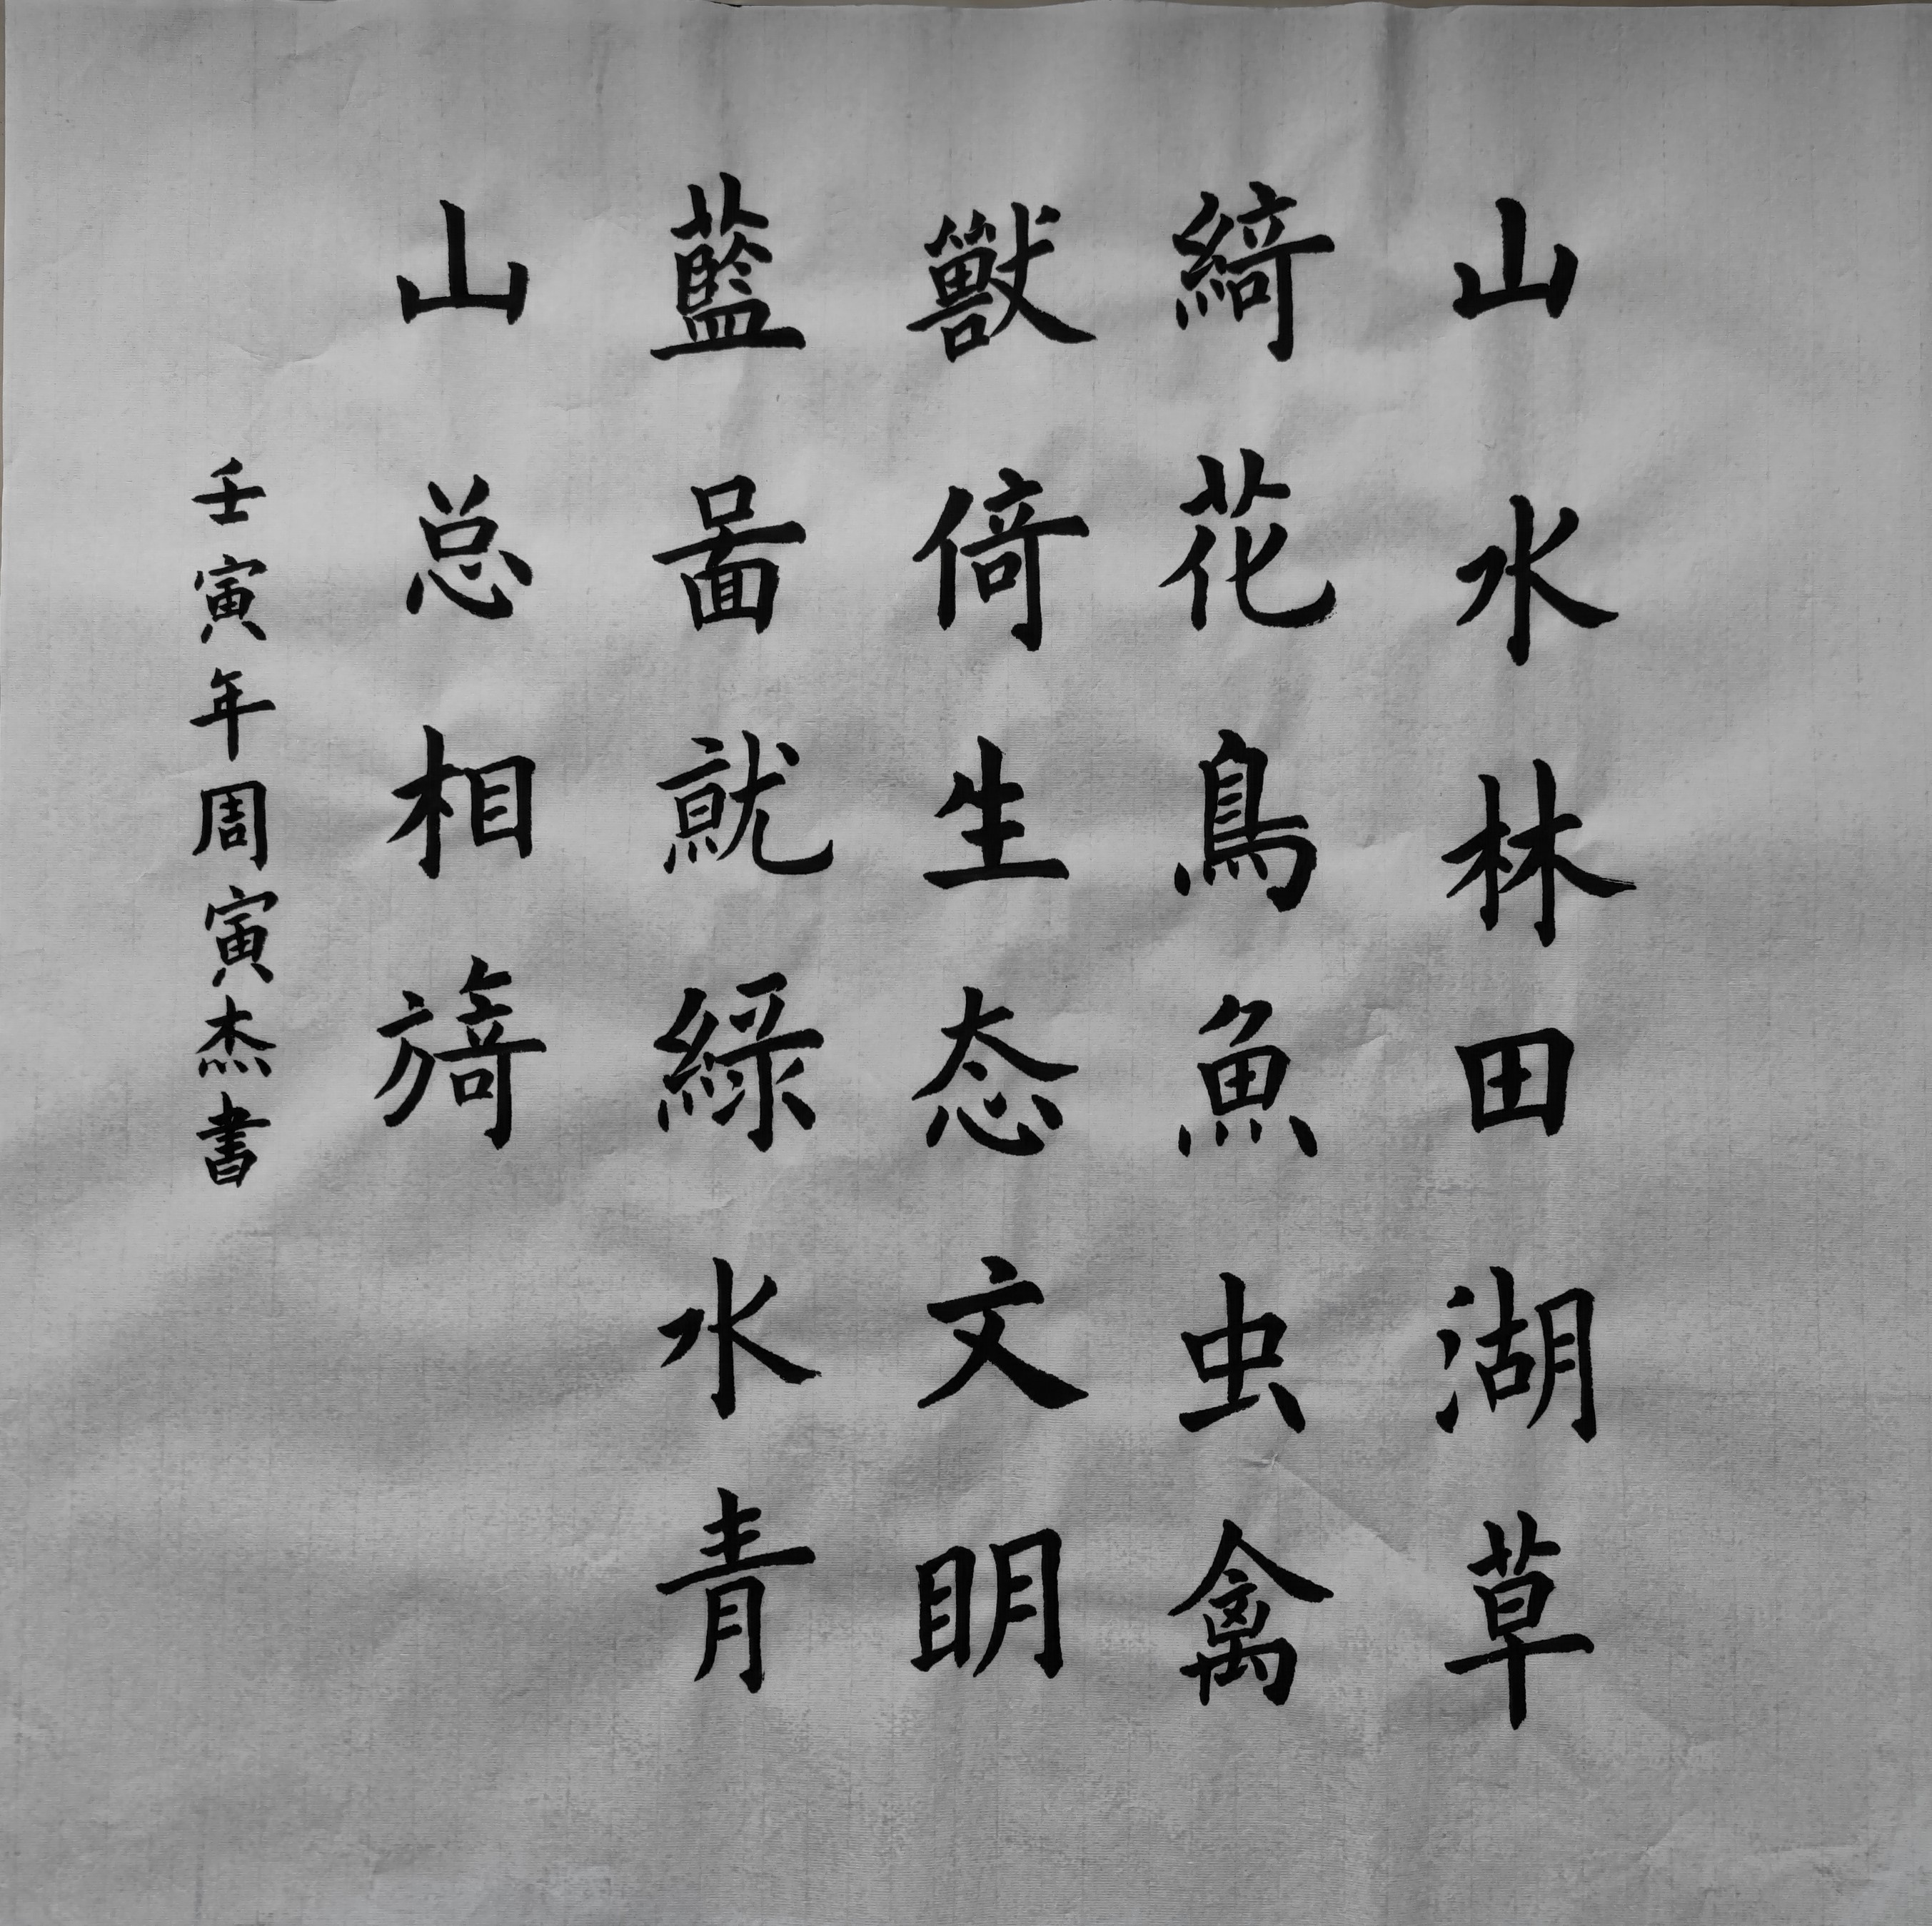 山水林田湖草
綺花鳥魚虫禽
獸倚生态文明
藍啚就綠水青
山总相旖
壬寅年周寅杰書